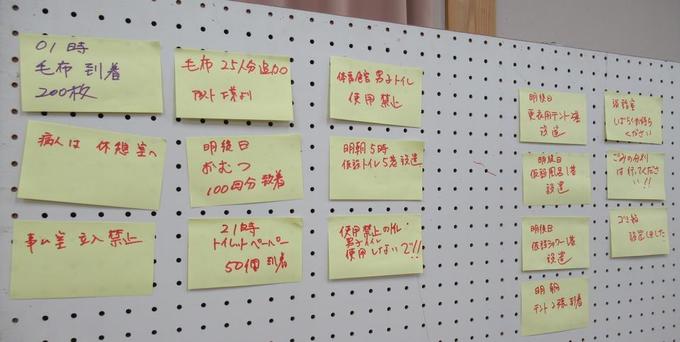 01時
毛布 到着
200枚
病人は 休憩室へ
事ム室 立入禁止
毛布 25人分追加
明後日
おむつ
100回分 到着
21時
トイレットペーパー
50個 到着
体育館 男子トイレ
使用禁止
明朝5時
仮設トイレ5基 設置
使用禁止の
男子トイレ
使用しないで!!
明後日
更衣用テント
設置
明後日
仮設風呂1基
設置
明後日
仮設シャワー1基
設置
明朝
テント2張 到着
しばらくお待ち
ください
ごみの分別
は行ってくださ
い!!
設置しました